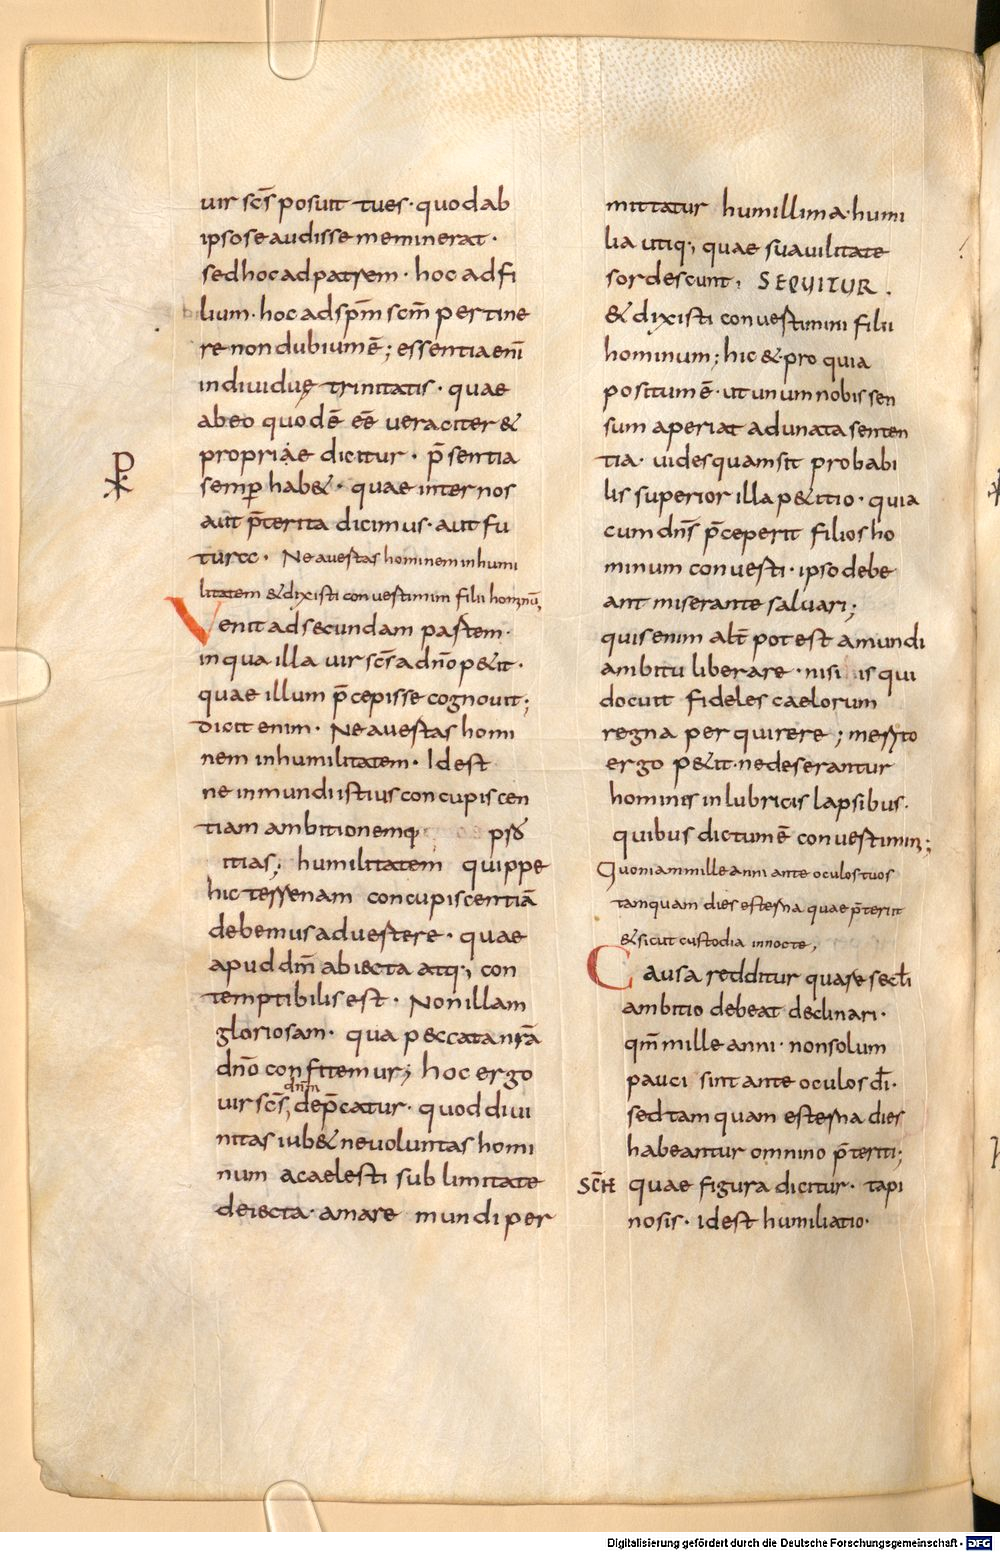 uir scs̄ posuit tu es · quod ab
ipso se audisse meminerat ·
sed hoc ad patrem · hoc ad fi
lium · hoc ad spm̄ scm̄ pertine
re non dubium ē; essentia eni̅
indiuiduę trinitatis · quae
ab eo quod ē eē ueraciter &
propriae dicitur · p̄sentia
semꝑ hab& · quae inter nos
aut p̄terita dicimus · aut fu
tura · Ne auertas hominem in humi
litatem & dixisti conuertimini filii hominū;
Venit ad secundam partem ·
in qua illa uir scs̄ a dn̄o p&it ·
quae illum p̄cepisse cognouit;
dicit enim · Ne auertas homi
nem in humilitatem · Id est
ne in mundi istius concupiscen
tiam ambitionemq;
itias; humilitatem quippe
hic terrenam concupiscentiā
debemus aduertere · quae
apud dm̄ abiecta atq; con
temptibilis est · Non illam
gloriosam · qua peccata nrā
dn̄o confitemur; hoc ergo
dnm̄
uir scs̄, dep̄catur · quod diui
nitas iub& ne uoluntas homi
num a caelesti sublimitate
deiecta · amare mundi per
mittatur humillima · humi
lia utiq;, quae sua uilitate
sordescunt; SEQUITUR ·
& dixisti conuertimini filii
hominum; hic & pro quia
positum ē · ut unum nobis sen
sum aperiat adunata senten
tia · uides quam sit probabi
lis superior illa p&itio · quia
cum dn̄s p̄ceperit filios ho
minum conuerti · ipso debe
ant miserante saluari;
quis enim alt̄ potest a mundi
ambitu liberare · nisi is qui
docuit fideles caelorum
regna perquirere; merito
ergo p&it · ne deserantur
hominis in lubricis lapsibus ·
quibus dictum ē conuertimini;
Quoniam mille anni ante oculos tuos
tamquam dies esterna quae p̄teriit
& sicut custodia in nocte;
Causa redditur quare sec̄li
ambitio debeat declinari ·
qm̄ mille anni · non solum
pauci sint ante oculos dī ·
sed tamquam esterna dies
habeantur omnino p̄teriti;
quae figura dicitur · tapi
nosis · id est humiliatio ·
Digitalisierung gefördert durch die Deutsche Forschungsgemeinschaft - DFG